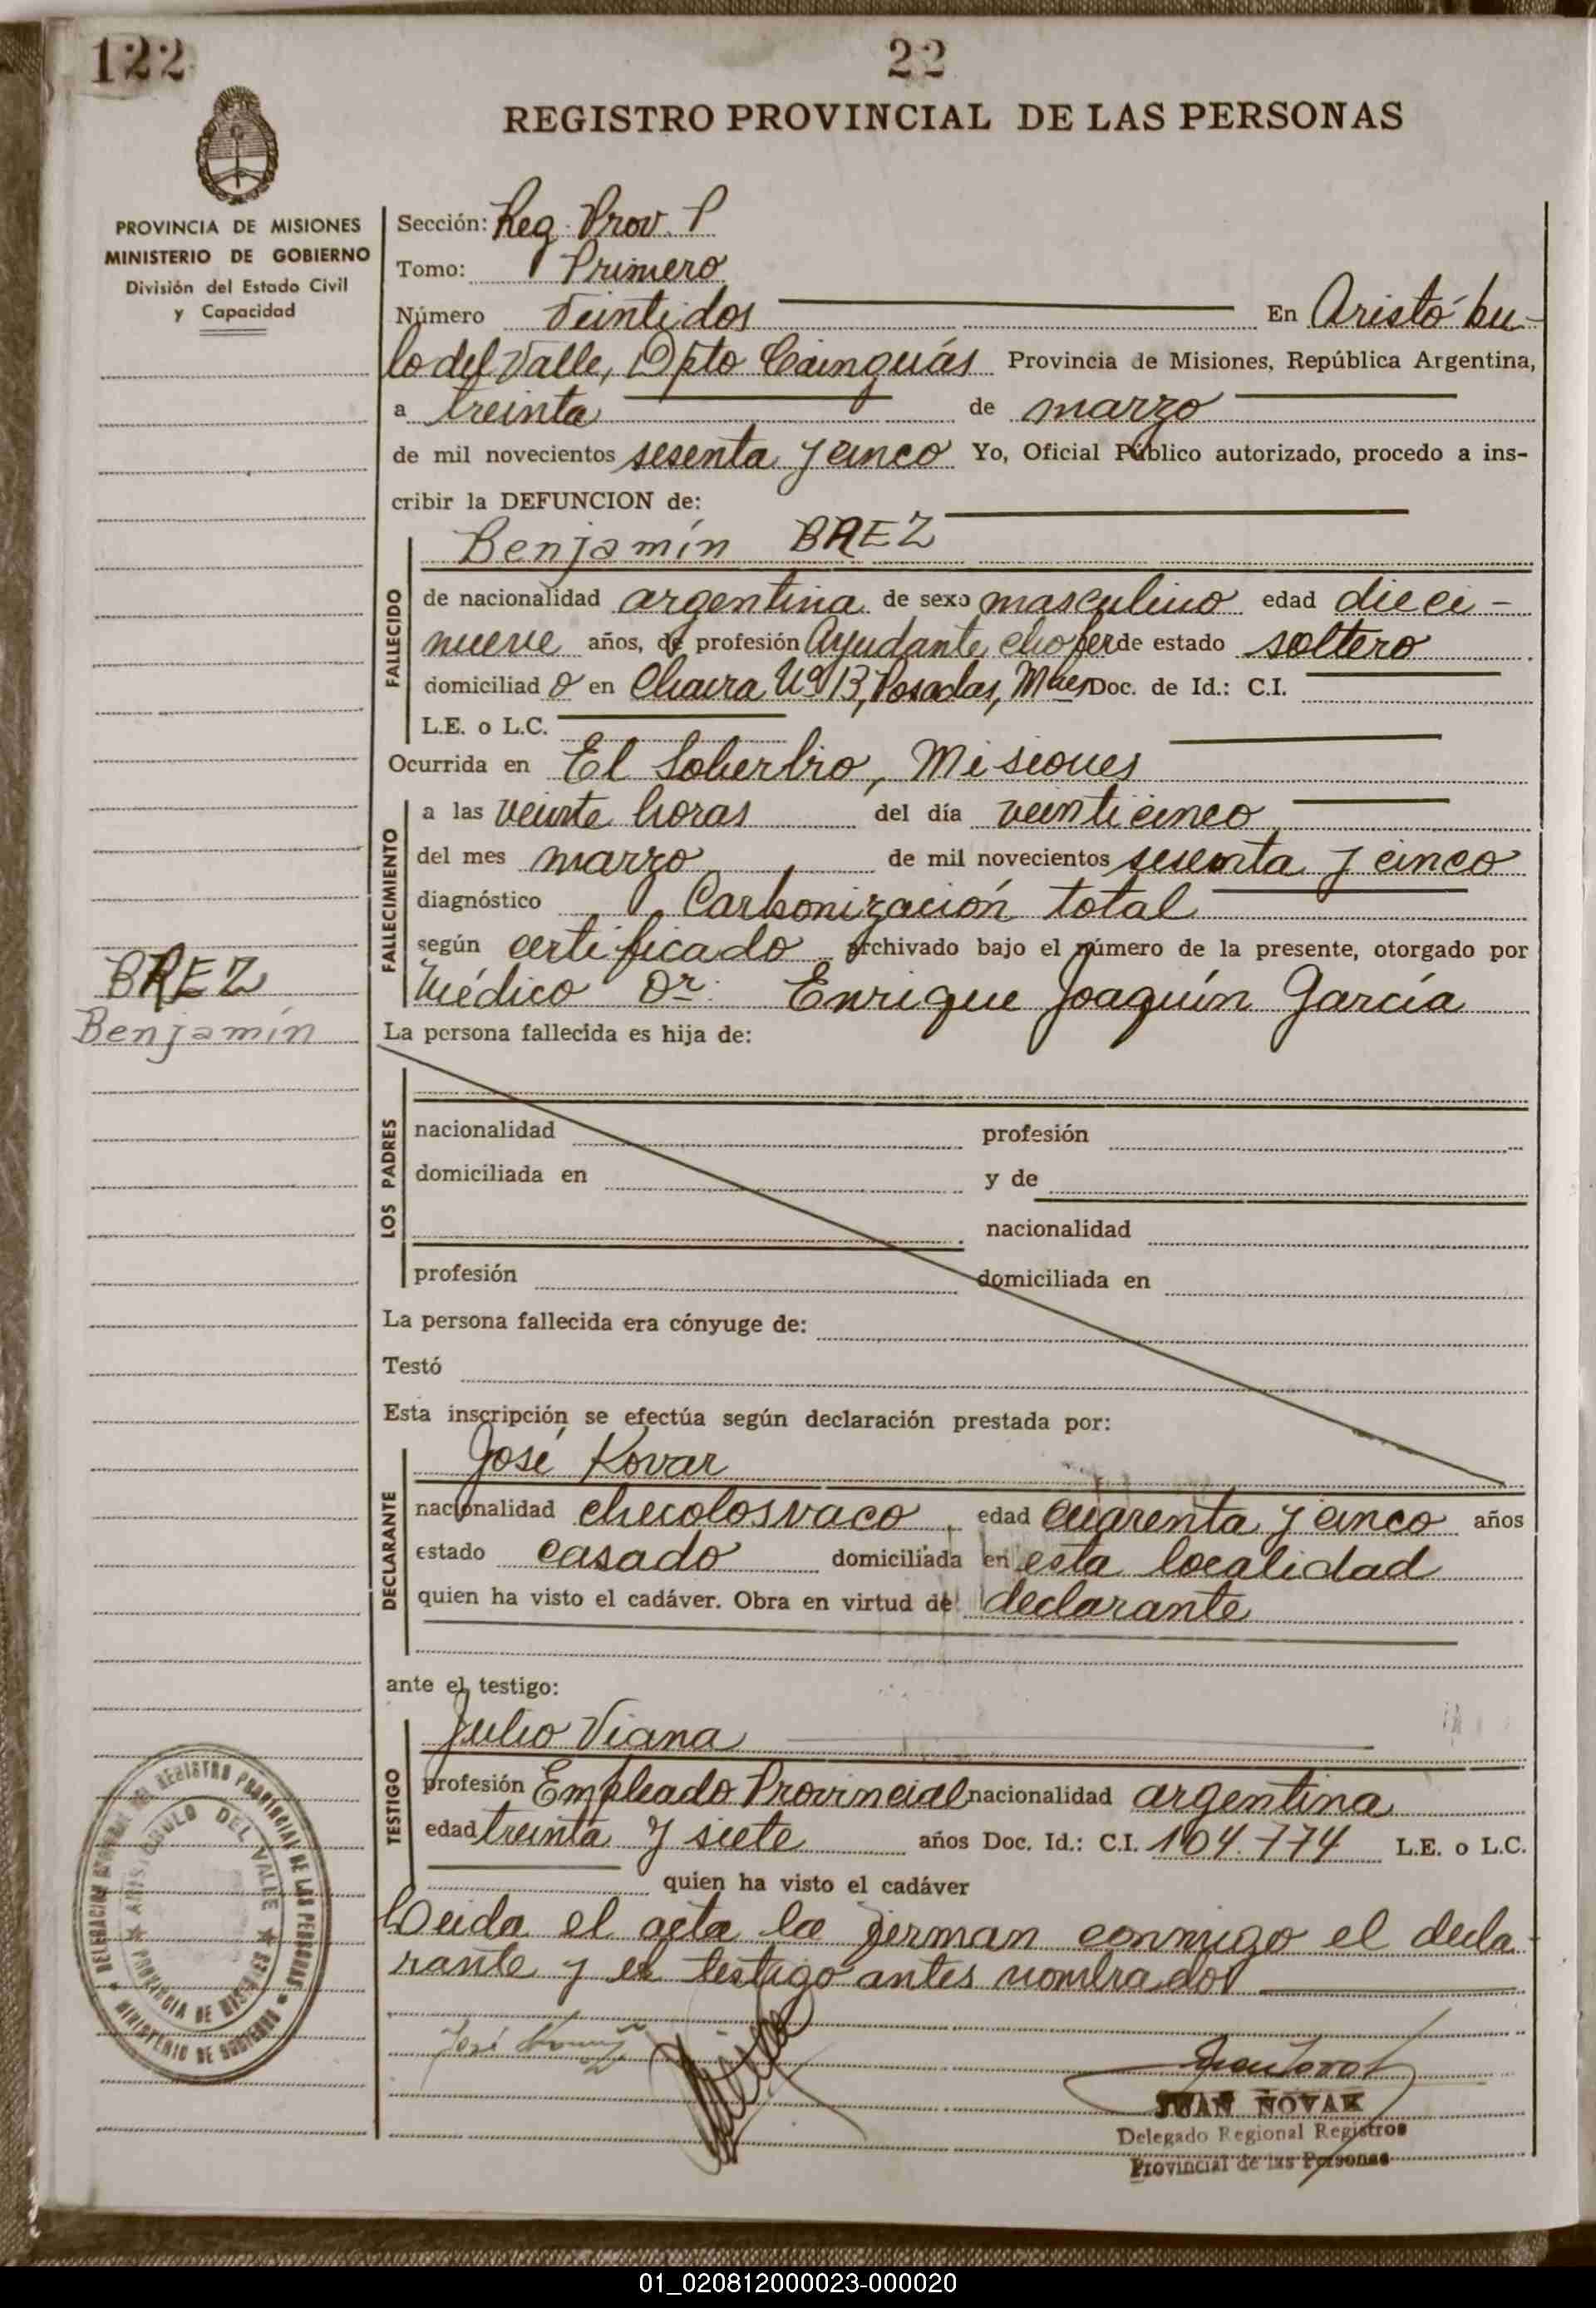 122
22
REGISTRO PROVINCIAL DE LAS PERSONAS
PROVINCIA DE MISIONES
MINISTERIO DE GOBIERNO
División del Estado Civil
y Capacidad
Sección: Reg. Prov. P
Tomo: Primero
Número Veintidos En Aristóbu-
lo del Valle, Dpto Cainguás Provincia de Misiones, República Argentina,
a treinta de marzo
de mil novecientos sesenta y cinco Yo, Oficial Público autorizado, procedo a ins-
cribir la DEFUNCION de:
Benjamín BAEZ
FALLECIDO
de nacionalidad argentina de sexo masculino edad dieci-
nueve años, de profesión Ayudante chofer de estado soltero
domiciliado en Nº 13, Posadas, Mnes Doc. de Id.: C.I.
L.E. o L.C.
Ocurrida en El Soberbio, Misiones
FALLECIMIENTO
a las veinte horas del día veinticinco
del mes marzo de mil novecientos sesenta y cinco
diagnóstico Carbonización total
según certificado archivado bajo el número de la presente, otorgado por
Médico Dr. Enrique Joaquín García
BAEZ
Benjamín
La persona fallecida es hija de:
LOS PADRES
nacionalidad profesión
domiciliada en y de
nacionalidad
profesión domiciliada en
La persona fallecida era cónyuge de:
Testó
Esta inscripción se efectúa según declaración prestada por:
DECLARANTE
José Kovar
nacionalidad checolosvaco edad cuarenta y cinco años
estado casado domiciliada en esta localidad
quien ha visto el cadáver. Obra en virtud de declarante
ante el testigo:
TESTIGO
Julio Viana
profesión Empleado Provincial nacionalidad argentina
edad treinta y siete años Doc. Id.: C.I. 104.774 L.E. o L.C.
quien ha visto el cadáver
Leida el acta la firman conmigo el decla-
rante y el testigo antes nombrados
DELEGACION REGISTRO PROVINCIAL DE LAS PERSONAS
ARISTOBULO DEL VALLE
PROVINCIA DE MISIONES
MINISTERIO DE GOBIERNO
José
JUAN NOVAK
Delegado Regional Registros
Provincial de las Personas
01_020812000023-000020